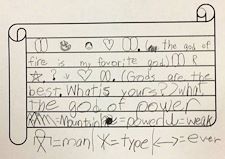 the god of
fire is my favorite god)
? (Gods are the
best. What is yours?) what
the god of power
= Mountain = powerful = weak
= man = type <--> = ever